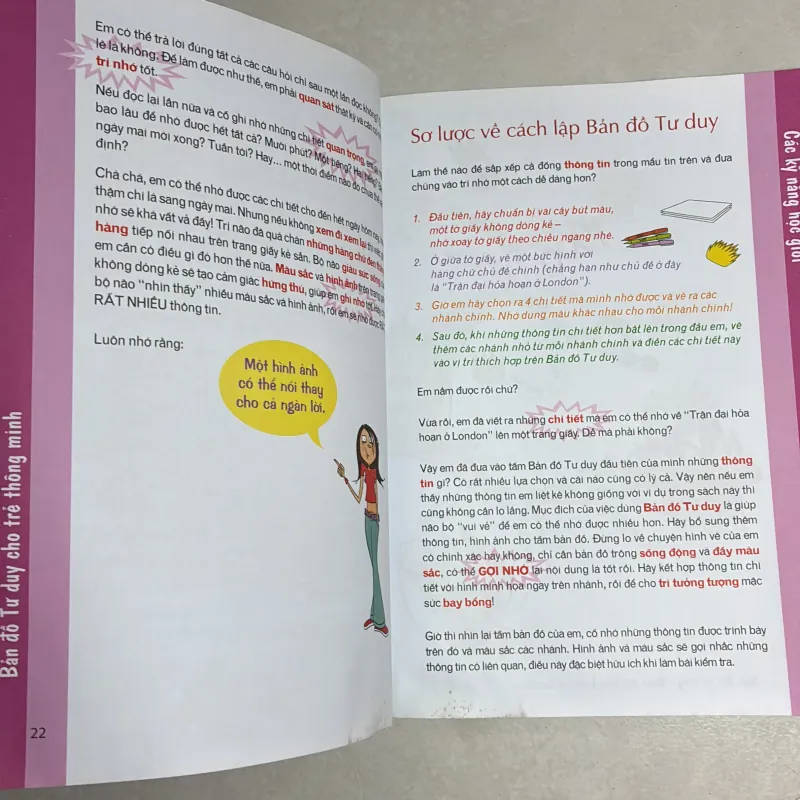 Em có thể trả lời đúng tất cả các câu hỏi chỉ sau một lần đọc không?
lẽ là không. Để làm được như thế, em phải quan sát thật kỹ và cần có
trí nhớ tốt.
Nếu đọc lại lần nữa và cố ghi nhớ những chi tiết quan trọng, em
bao lâu để nhớ được hết tất cả? Mười phút? Một tiếng? Hai tiếng?
ngày mai mới xong? Tuần tới? Hay... một thời điểm nào đó chưa thể
định?
Chà chà, em có thể nhớ được các chi tiết cho đến hết ngày hôm nay,
thậm chí là sang ngày mai. Nhưng nếu không xem đi xem lại thì việc
nhớ sẽ khá vất vả đấy! Trí não đã quá chán những hàng chữ đen
hàng tiếp nối nhau trên trang giấy kẻ sẵn. Bộ não giàu sức sống
em cần có điều gì đó hơn thế nữa. Màu sắc và hình ảnh trên trang
không dòng kẻ sẽ tạo cảm giác hứng thú, giúp em ghi nhớ tốt
bộ não "nhìn thấy" nhiều màu sắc và hình ảnh, rồi em sẽ nhớ được
RẤT NHIỀU thông tin.
Luôn nhớ rằng:
Một hình ảnh
có thể nói thay
cho cả ngàn lời.
Bản đồ Tư duy cho trẻ thông minh
22
Sơ lược về cách lập Bản đồ Tư duy
Làm thế nào để sắp xếp cả đống thông tin trong mẩu tin trên và đưa
chúng vào trí nhớ một cách dễ dàng hơn?
1. Đầu tiên, hãy chuẩn bị vài cây bút màu,
một tờ giấy không dòng kẻ –
nhớ xoay tờ giấy theo chiều ngang nhé.
2. Ở giữa tờ giấy, vẽ một bức hình với
hàng chữ chủ đề chính (chẳng hạn như chủ đề ở đây
là "Trận đại hỏa hoạn ở London").
3. Giờ em hãy chọn ra 4 chi tiết mà mình nhớ được và vẽ ra các
nhánh chính. Nhớ dùng màu khác nhau cho mỗi nhánh chính!
4. Sau đó, khi những thông tin chi tiết hơn bật lên trong đầu em, vẽ
thêm các nhánh nhỏ từ mỗi nhánh chính và điền các chi tiết này
vào vị trí thích hợp trên Bản đồ Tư duy.
Em nắm được rồi chứ?
Vừa rồi, em đã viết ra những chi tiết mà em có thể nhớ về "Trận đại hỏa
hoạn ở London" lên một trang giấy. Dễ mà phải không?
Vậy em đã đưa vào tấm Bản đồ Tư duy đầu tiên của mình những thông
tin gì? Có rất nhiều lựa chọn và cái nào cũng có lý cả. Vậy nên nếu em
thấy những thông tin em liệt kê không giống với ví dụ trong sách này thì
cũng không cần lo lắng. Mục đích của việc dùng Bản đồ Tư duy là giúp
não bộ "vui vẻ" để em có thể nhớ được nhiều hơn. Hãy bổ sung thêm
thông tin, hình ảnh cho tấm bản đồ. Đừng lo về chuyện hình vẽ của em
có chính xác hay không, chỉ cần bản đồ trông sống động và đầy màu
sắc, có thể GỢI NHỚ lại nội dung là tốt rồi. Hãy kết hợp thông tin chi
tiết với hình minh họa ngay trên nhánh, rồi để cho trí tưởng tượng mặc
sức bay bổng!
Giờ thì nhìn lại tấm bản đồ của em, cố nhớ những thông tin được trình bày
trên đó và màu sắc các nhánh. Hình ảnh và màu sắc sẽ gợi nhắc những
thông tin có liên quan, điều này đặc biệt hữu ích khi làm bài kiểm tra.
Các kỹ năng học giỏi